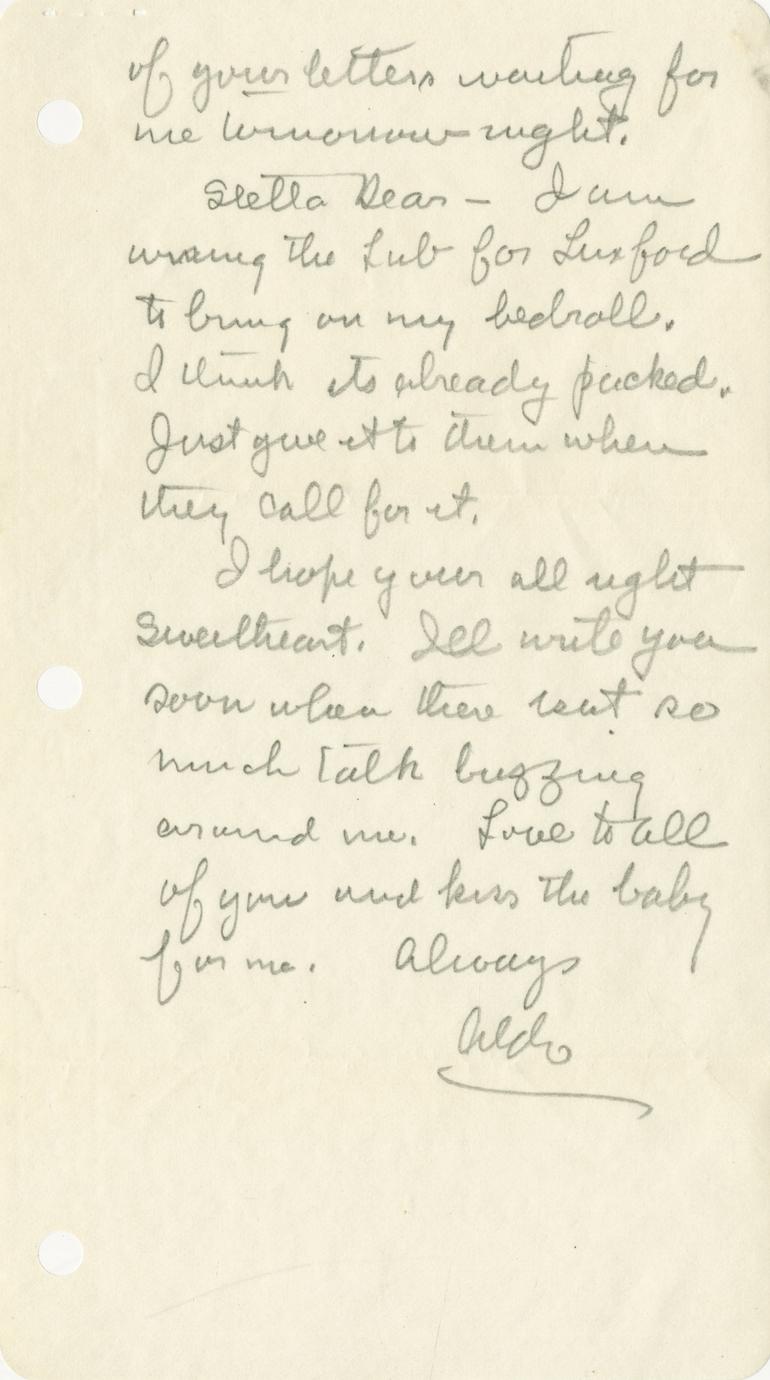 of your letters waiting for
me tomorrow night.
Stella Dear – I am
wiring the Lab for Luxford
to bring on my bedroll.
I think its already packed.
Just give it to them when
they call for it.
I hope your all right
Sweetheart. Ill write you
soon when there isnt so
much talk buzzing
around me. Love to all
of you and kiss the baby
for me. Always
Aldo